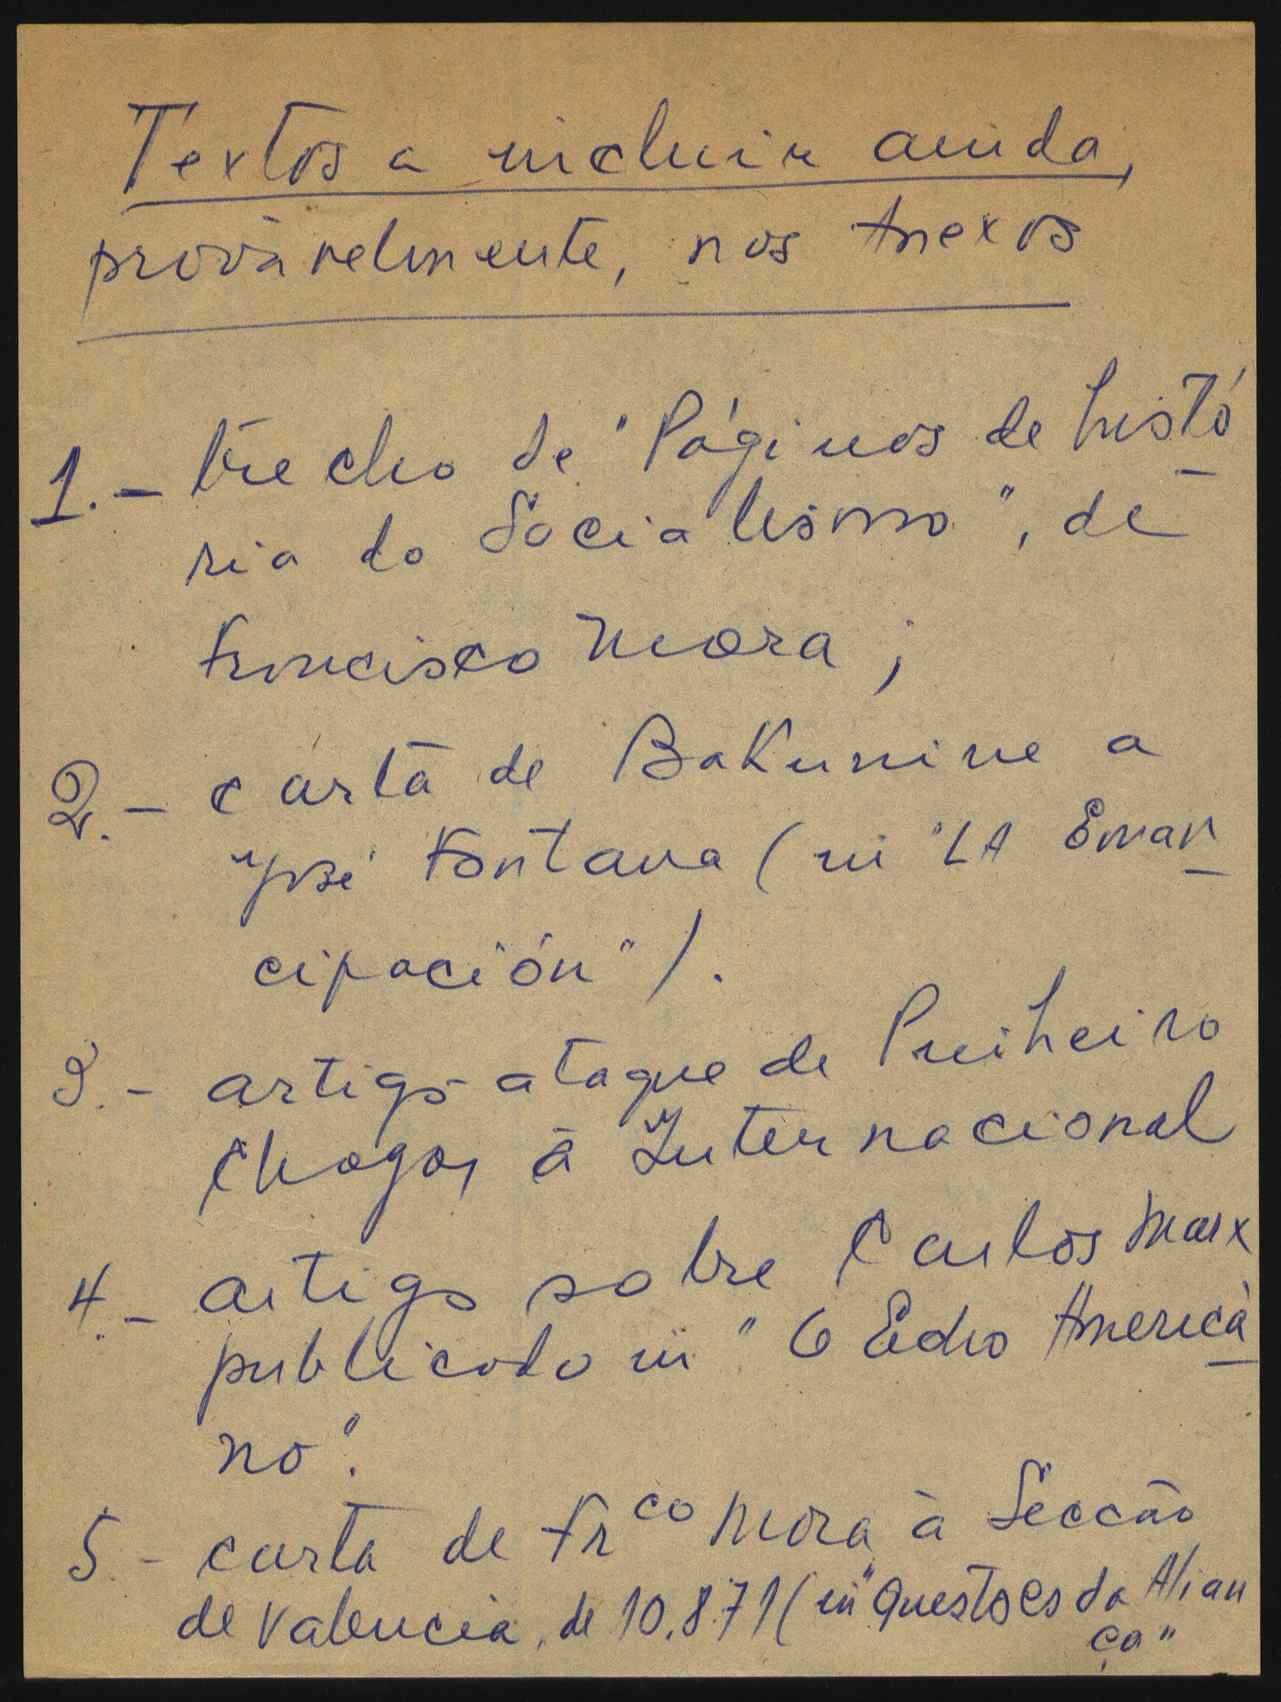 Textos a incluir ainda,
provàvelmente, nos Anexos
1. - trecho de "Páginas de histó
ria do Socialismo", de
Francisco Mora;
2. - carta de Bakunine a
José Fontana (in "LA Eman
cipación").
3. - artigo-ataque de Pinheiro
Chagas à Internacional
4. - artigo sobre Carlos Marx
publicado in "O Echo America
no".
5 - carta de Frco Mora à Secção
de Valencia, de 10.8.71 (in "Questões da Alian
ça"